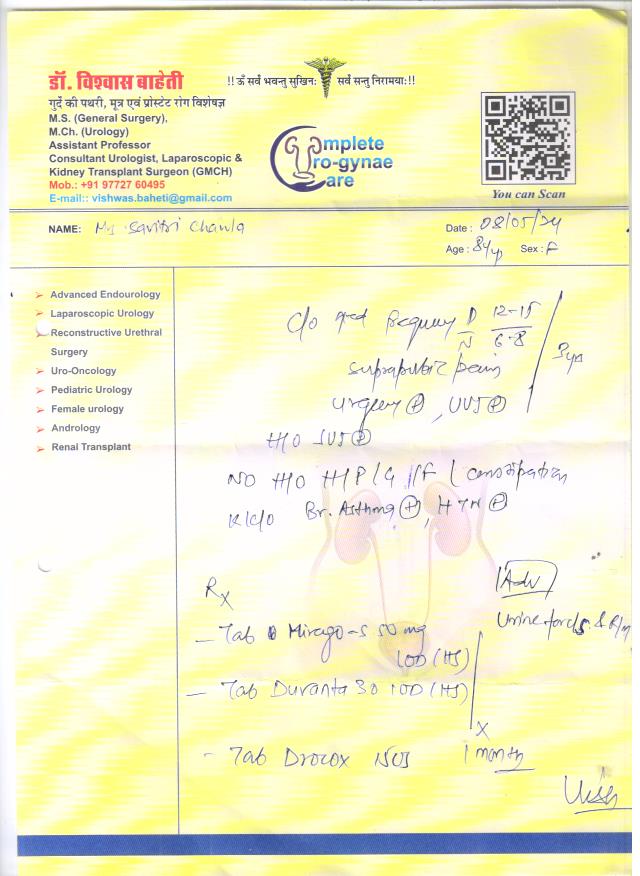 डॉ. विश्वास बाहेती
!! ऊँ सर्वे भवन्तु सुखिनः सर्वे सन्तु निरामयाः !!
गुर्दे की पथरी, मूत्र एवं प्रोस्टेट रोग विशेषज्ञ
M.S. (General Surgery),
M.Ch. (Urology)
Assistant Professor
Consultant Urologist, Laparoscopic &
Kidney Transplant Surgeon (GMCH)
Mob.: +91 97727 60495
E-mail:: vishwas.baheti@gmail.com
Complete
Uro-gynae
Care
You can Scan
NAME: Savitri Chawla
Date : 08/05/24
Age : 84y Sex : F
Advanced Endourology
Laparoscopic Urology
Reconstructive Urethral
Surgery
Uro-Oncology
Pediatric Urology
Female urology
Andrology
Renal Transplant
C/o frequency D 12-15
N 6-8
suprapubic pain
urgency +, UUI +
H/O SUI +
NO H/O / constipation
K/C/O Br. Asthma +, HTN +
Rx
Adv
Urine for c/s & R/m
- Tab Mirago-S 50 mg
1OD (HS)
- Tab Duranta 30 1OD (HS)
x
1 month
- Tab